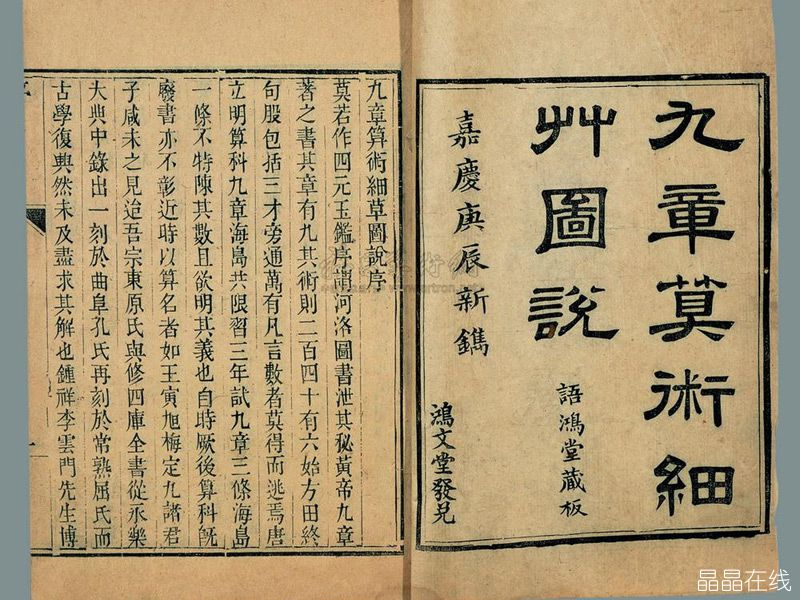 九章算術細
艸圖說
語鴻堂藏板
嘉慶庚辰新鐫
鴻文堂發兌
九章算術細草圖說序
莫若作四元玉鑑序謂河洛圖書泄其秘黃帝九章
著之書其章有九其術則二百四十有六始方田終
句股包括三才旁通萬有凡言數者莫得而逃焉唐
立明算科九章海島共限習三年試九章三條海島
一條不特陳其數且欲明其義也自時厥後算科旣
廢書亦不彰近時以算名者如王寅旭梅定九諸君
子咸未之見迨吾宗東原氏與修四庫全書從永樂
大典中錄出一刻於曲阜孔氏再刻於常熟屈氏而
古學復興然未及盡求其解也鍾祥李雲門先生博
晶晶在线